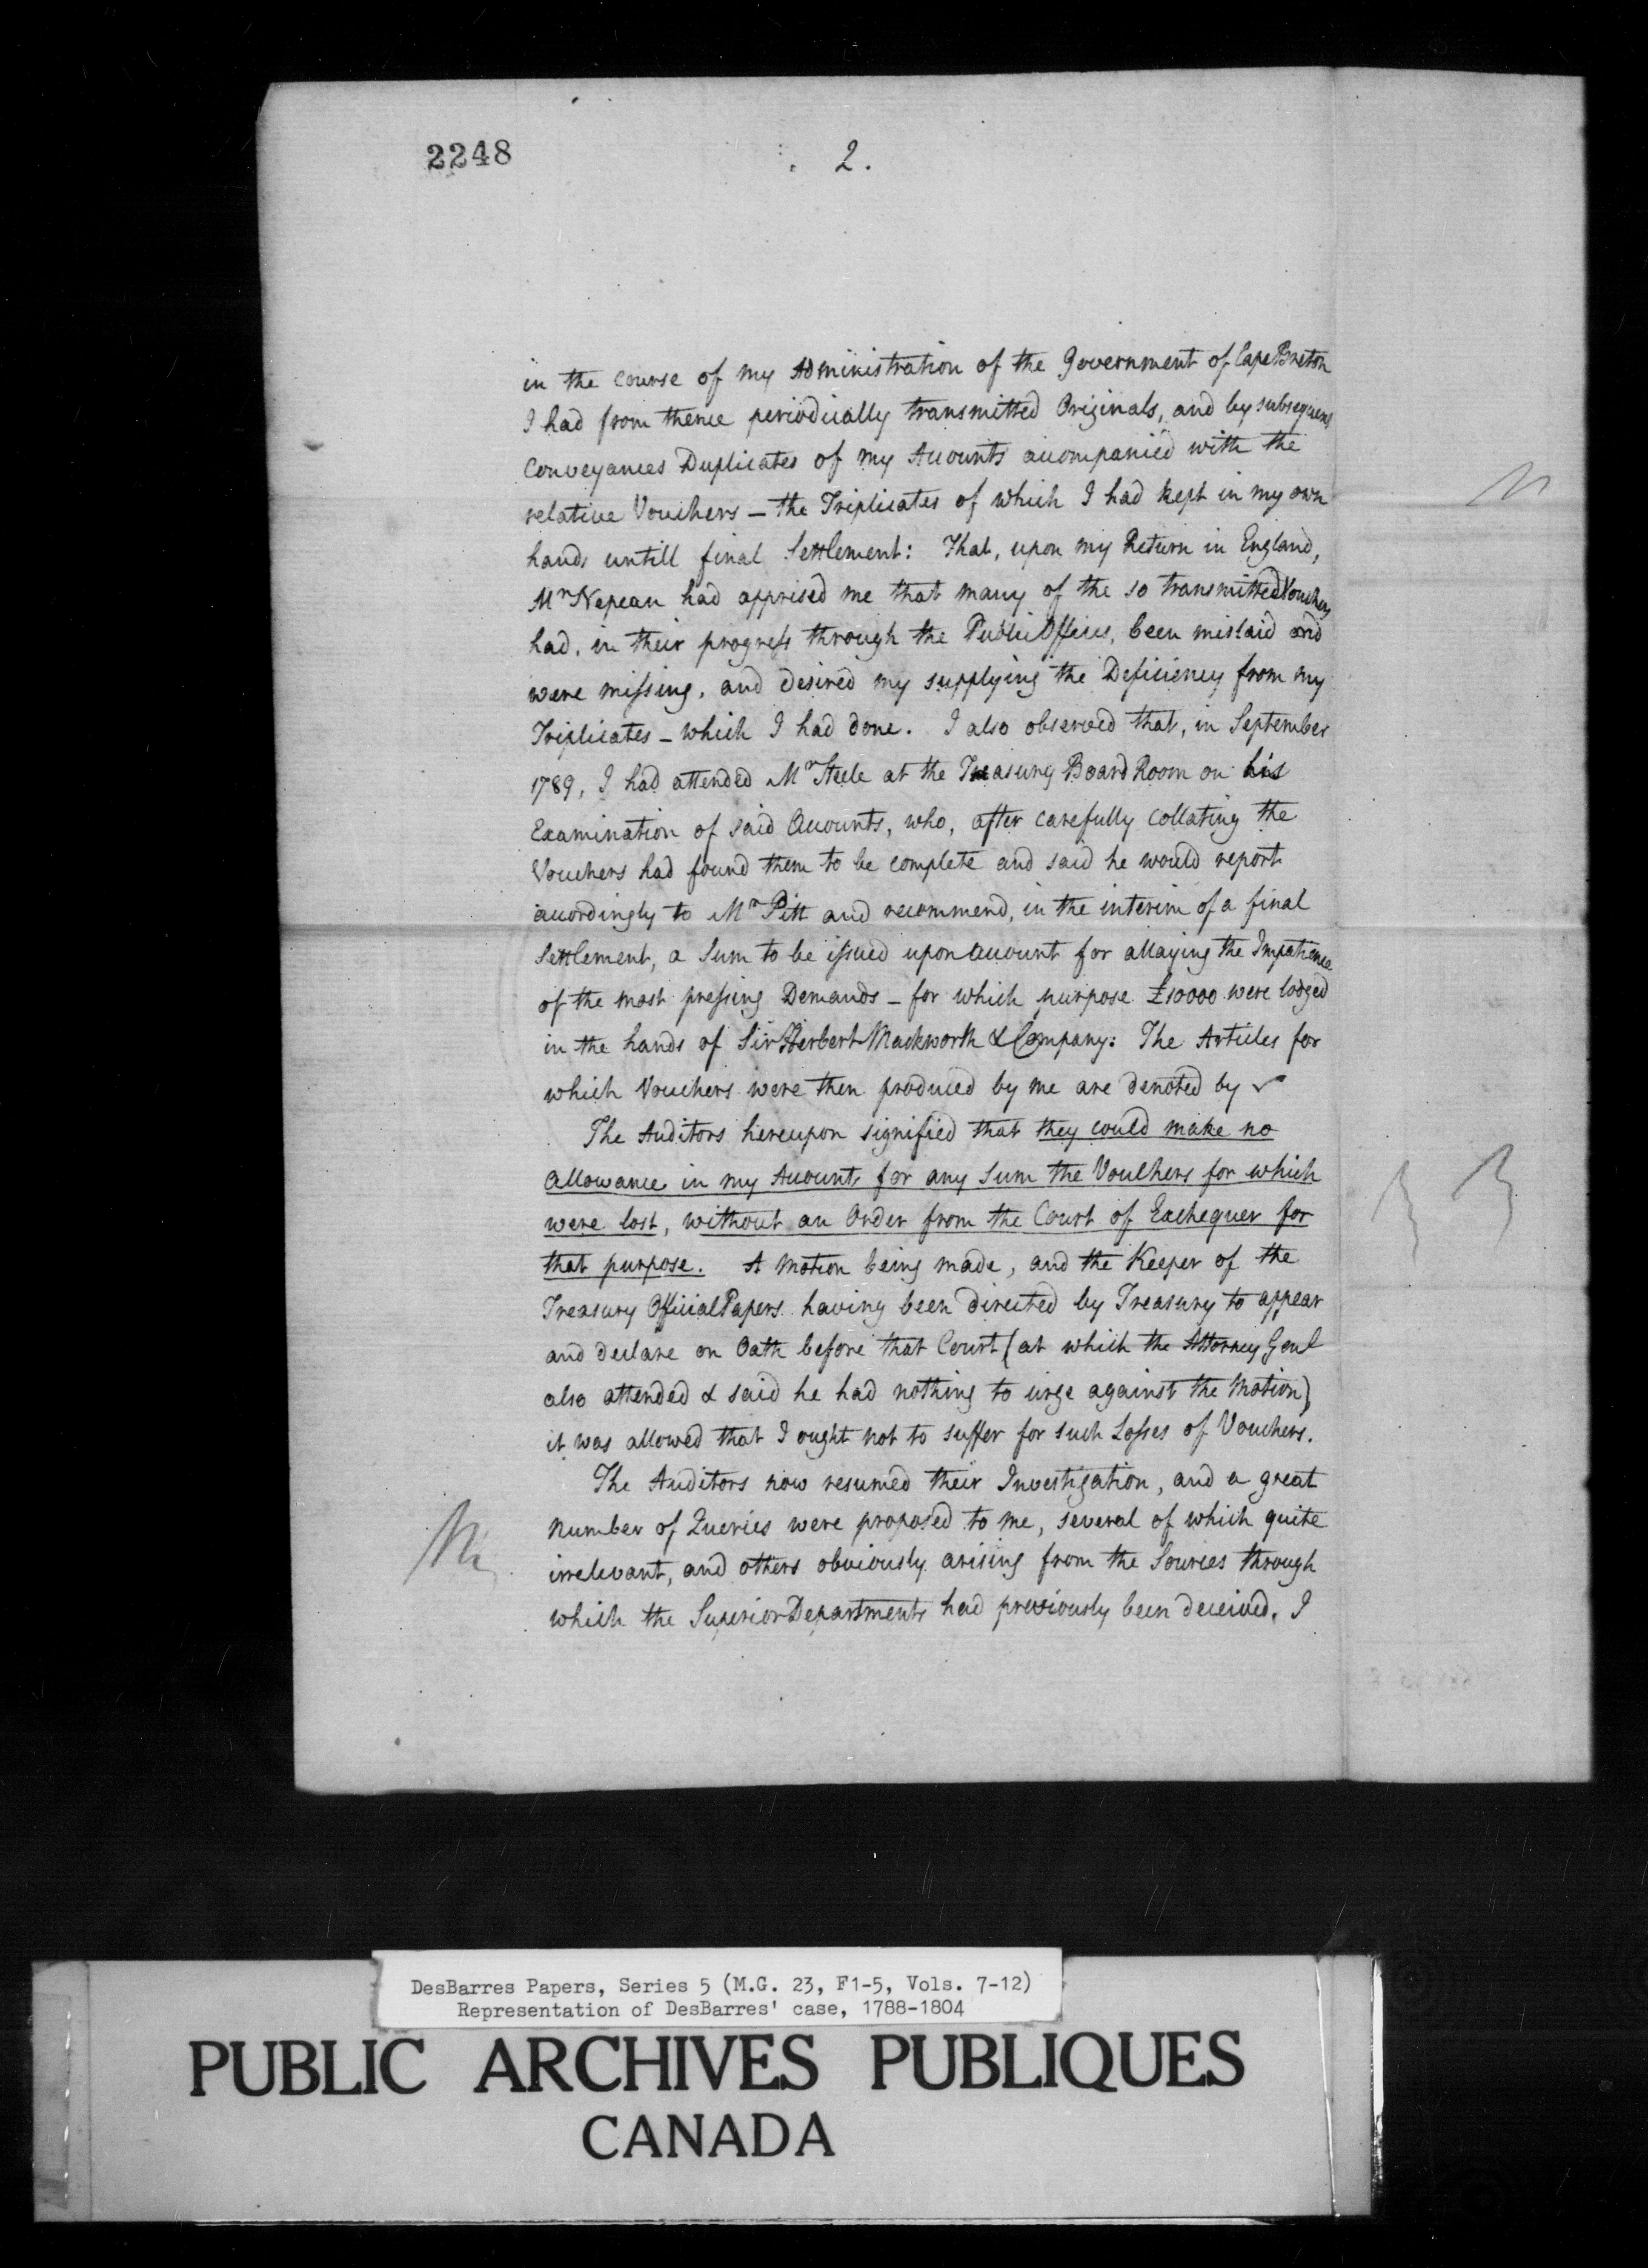 2248
2.
in the course of my Administration of the Government of Cape Breton
I had from thence periodically transmitted Originals, and by subsequent
Conveyances Duplicates of my Accounts accompanied with the
relative Vouchers — the Triplicates of which I had kept in my own
hands untill final Settlement: That, upon my Return in England,
Mr Nepean had apprised me that many of the so transmitted Vouchers
had, in their progress through the Public Offices, been mislaid and
were missing, and desired my supplying the Deficiency from my
Triplicates — which I had done. I also observed that, in September
1789, I had attended Mr Steele at the Treasury Board Room on his
Examination of said Accounts, who, after carefully collating the
Vouchers had found them to be complete and said he would report
accordingly to Mr Pitt and recommend, in the interim of a final
Settlement, a Sum to be issued upon account for allaying the Impatience
of the most pressing Demands — for which purpose £10000 were lodged
in the hands of Sir Herbert Mackworth & Company: The Articles for
which Vouchers were then produced by me are denoted by ✓
The Auditors hereupon signified that they could make no
allowance in my Account for any Sum the Vouchers for which
were lost, without an Order from the Court of Exchequer for
that purpose. A Motion being made, and the Keeper of the
Treasury Official Papers having been directed by Treasury to appear
and declare on Oath before that Court (at which the Attorney Genl
also attended & said he had nothing to urge against the Motion)
it was allowed that I ought not to suffer for such Losses of Vouchers.
The Auditors now resumed their Investigation, and a great
Number of Queries were proposed to me, several of which quite
irrelevant, and others obviously arising from the Sources through
which the Superior Departments had previously been deceived. I
DesBarres Papers, Series 5 (M.G. 23, F1-5, Vols. 7-12)
Representation of DesBarres' case, 1788-1804
PUBLIC ARCHIVES PUBLIQUES
CANADA